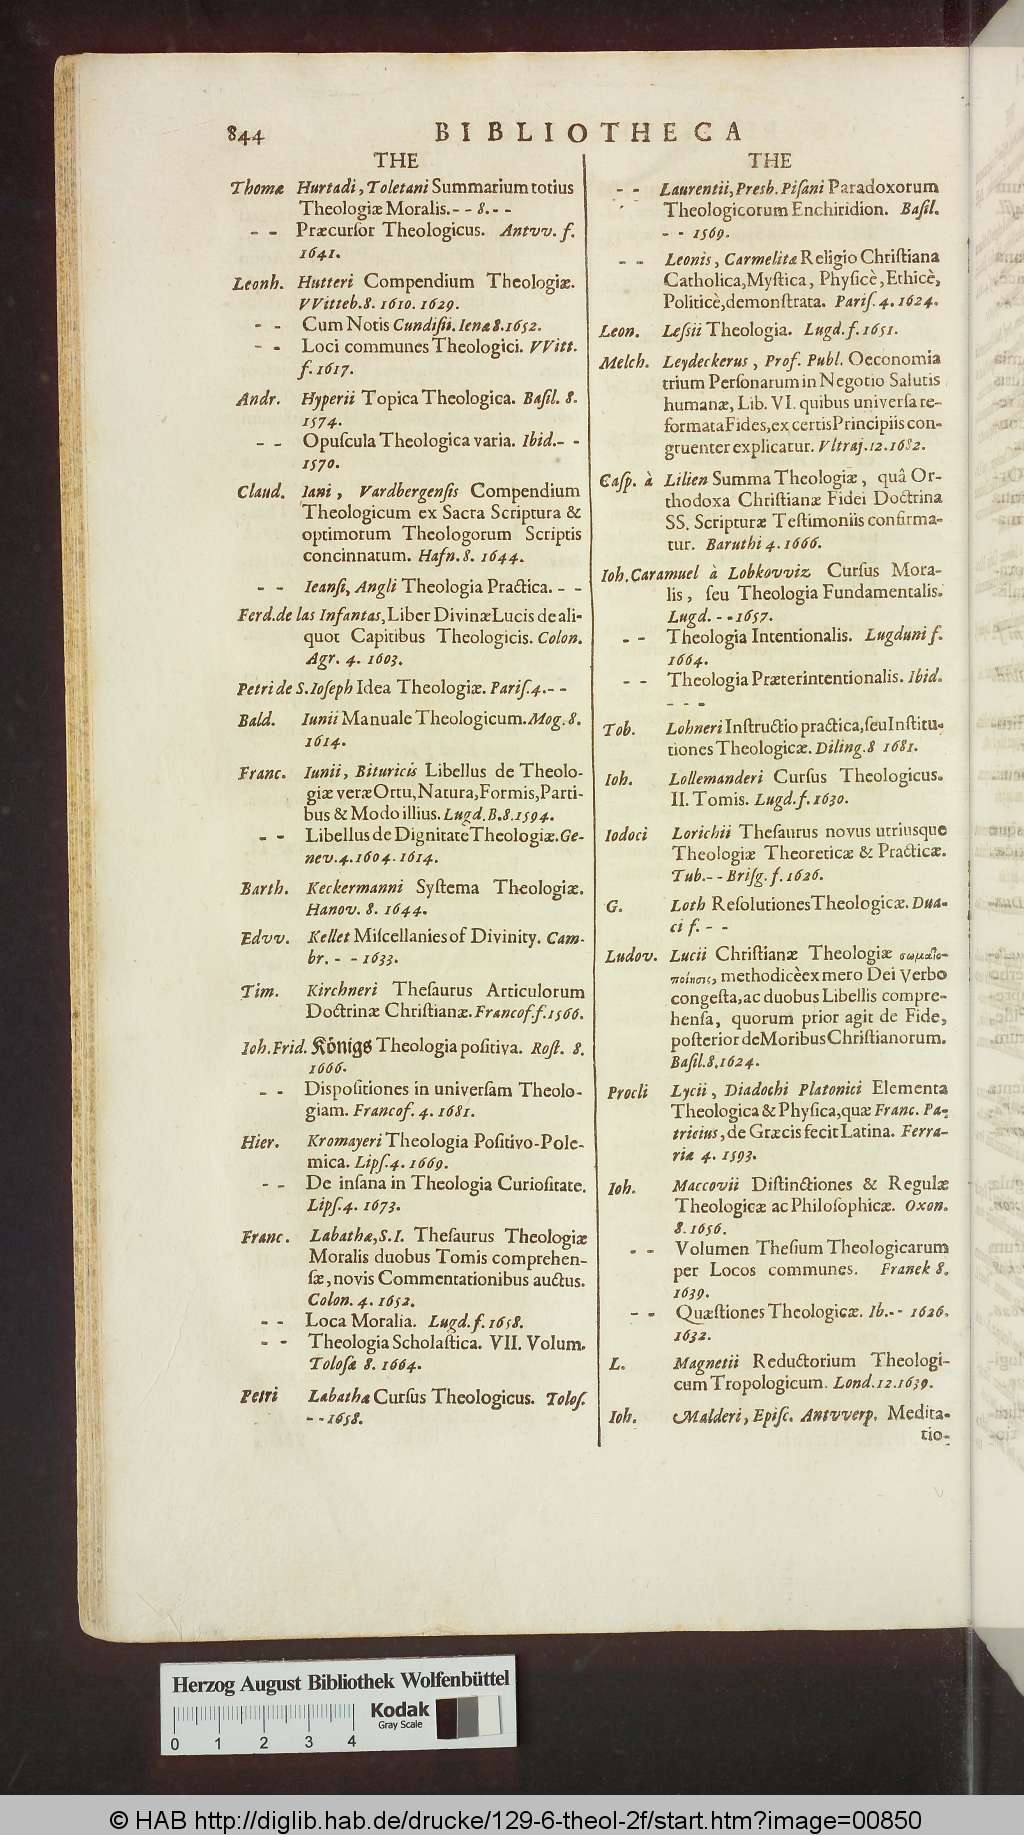 844
BIBLIOTHECA
THE
Thomæ Hurtadi, Toletani Summarium totius
Theologiæ Moralis.- - 8. - -
- - Præcurſor Theologicus. Antvv. f.
1641.
Leonh. Hutteri Compendium Theologiæ.
VVitteb. 8. 1610. 1629.
- - Cum Notis Cundiſii. Ienæ 8. 1652.
- - Loci communes Theologici. VVitt.
f. 1617.
Andr. Hyperii Topica Theologica. Baſil. 8.
1574.
- - Opuſcula Theologica varia. Ibid.- -
1570.
Claud. Iani, Vardbergenſis Compendium
Theologicum ex Sacra Scriptura &
optimorum Theologorum Scriptis
concinnatum. Hafn. 8. 1644.
- - Ieanſi, Angli Theologia Practica. - -
Ferd. de las Infantas, Liber Divinæ Lucis de ali-
quot Capitibus Theologicis. Colon.
Agr. 4. 1603.
Petri de S. Ioſeph Idea Theologiæ. Pariſ. 4. - -
Bald. Iunii Manuale Theologicum. Mog. 8.
1614.
Franc. Iunii, Bituricis Libellus de Theolo-
giæ veræ Ortu, Natura, Formis, Parti-
bus & Modo illius. Lugd. B. 8. 1594.
- - Libellus de Dignitate Theologiæ. Ge-
nev. 4. 1604. 1614.
Barth. Keckermanni Syſtema Theologiæ.
Hanov. 8. 1644.
Edvv. Kellet Miſcellanies of Divinity. Cam-
br. - - 1633.
Tim. Kirchneri Theſaurus Articulorum
Doctrinæ Chriſtianæ. Francof. f. 1566.
Ioh. Frid. Königs Theologia poſitiva. Roſt. 8.
1666.
- - Diſpoſitiones in univerſam Theolo-
giam. Francof. 4. 1681.
Hier. Kromayeri Theologia Poſitivo-Pole-
mica. Lipſ. 4. 1669.
- - De inſana in Theologia Curioſitate.
Lipſ. 4. 1673.
Franc. Labathæ, S. I. Theſaurus Theologiæ
Moralis duobus Tomis comprehen-
ſæ, novis Commentationibus auctus.
Colon. 4. 1652.
- - Loca Moralia. Lugd. f. 1658.
- - Theologia Scholaſtica. VII. Volum.
Toloſæ 8. 1664.
Petri Labathæ Curſus Theologicus. Toloſ.
- - 1658.
THE
- - Laurentii, Presb. Piſani Paradoxorum
Theologicorum Enchiridion. Baſil.
- - 1569.
- - Leonis, Carmelitæ Religio Chriſtiana
Catholica, Myſtica, Phyſicè, Ethicè,
Politicè, demonſtrata. Pariſ. 4. 1624.
Leon. Leſſii Theologia. Lugd. f. 1651.
Melch. Leydeckerus, Prof. Publ. Oeconomia
trium Perſonarum in Negotio Salutis
humanæ, Lib. VI. quibus univerſa re-
formata Fides, ex certis Principiis con-
gruenter explicatur. Vltraj. 12. 1682.
Caſp. à Lilien Summa Theologiæ, quâ Or-
thodoxa Chriſtianæ Fidei Doctrina
SS. Scripturæ Teſtimoniis confirma-
tur. Baruthi 4. 1666.
Ioh. Caramuel à Lobkovviz Curſus Mora-
lis, ſeu Theologia Fundamentalis.
Lugd. - - 1657.
- - Theologia Intentionalis. Lugduni f.
1664.
- - Theologia Præterintentionalis. Ibid.
- - -
Tob. Lohneri Inſtructio practica, ſeu Inſtitu-
tiones Theologicæ. Diling. 8 1681.
Ioh. Lollemanderi Curſus Theologicus.
II. Tomis. Lugd. f. 1630.
Iodoci Lorichii Theſaurus novus utriusque
Theologiæ Theoreticæ & Practicæ.
Tub. - - Briſg. f. 1626.
G. Loth Reſolutiones Theologicæ. Dua-
ci f. - -
Ludov. Lucii Chriſtianæ Theologiæ σωματο-
ποίησις, methodicè ex mero Dei Verbo
congeſta, ac duobus Libellis compre-
henſa, quorum prior agit de Fide,
poſterior de Moribus Chriſtianorum.
Baſil. 8. 1624.
Procli Lycii, Diadochi Platonici Elementa
Theologica & Phyſica, quæ Franc. Pa-
tricius, de Græcis fecit Latina. Ferra-
riæ 4. 1593.
Ioh. Maccovii Diſtinctiones & Regulæ
Theologicæ ac Philoſophicæ. Oxon.
8. 1656.
- - Volumen Theſium Theologicarum
per Locos communes. Franek 8.
1639.
- - Quæſtiones Theologicæ. Ib. - - 1626.
1632.
L. Magnetii Reductorium Theologi-
cum Tropologicum. Lond. 12. 1639.
Ioh. Malderi, Epiſc. Antvverp. Medita-
tio-
Herzog August Bibliothek Wolfenbüttel
Kodak
Gray Scale
0 1 2 3 4
© HAB http://diglib.hab.de/drucke/129-6-theol-2f/start.htm?image=00850